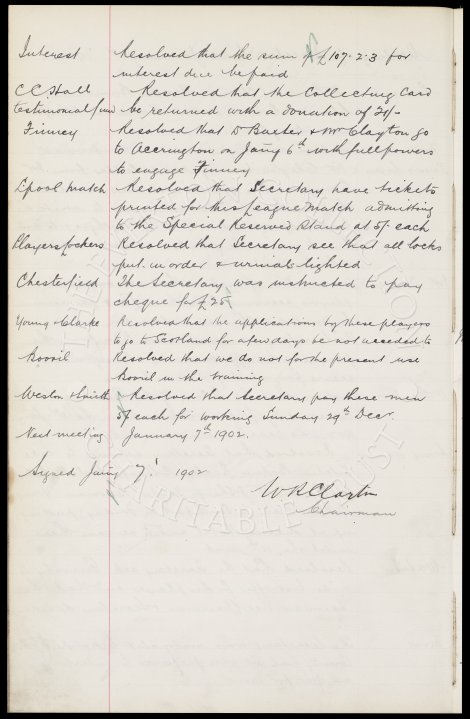 Interest Resolved that the sum of £107.2.3 for
interest due be paid
C C Hall Resolved that the Collecting Card
testimonial fund be returned with a donation of 20/-
Finney Resolved that Dr Baxter & Mr Clayton go
to Accrington on Jany 6th with full powers
to engage Finney
L'pool match Resolved that Secretary have tickets
printed for this League Match admitting
to the Special Reserved Stand at 5/- each
Players Lockers Resolved that Secretary see that all locks
put in order & urinals lighted
Chesterfield The Secretary was instructed to pay
cheque for £25
Young & Clarke Resolved that the applications by these players
to go to Scotland for a few days be not acceded to
Bovril Resolved that we do not for the present use
Bovril in the training
Weston & Smith Resolved that Secretary pay these men
5/- each for working Sunday 29th Decr.
Next meeting January 7th 1902.
Signed Jany 7th 1902
W R Clayton
Chairman
CHARITABLE TRUST